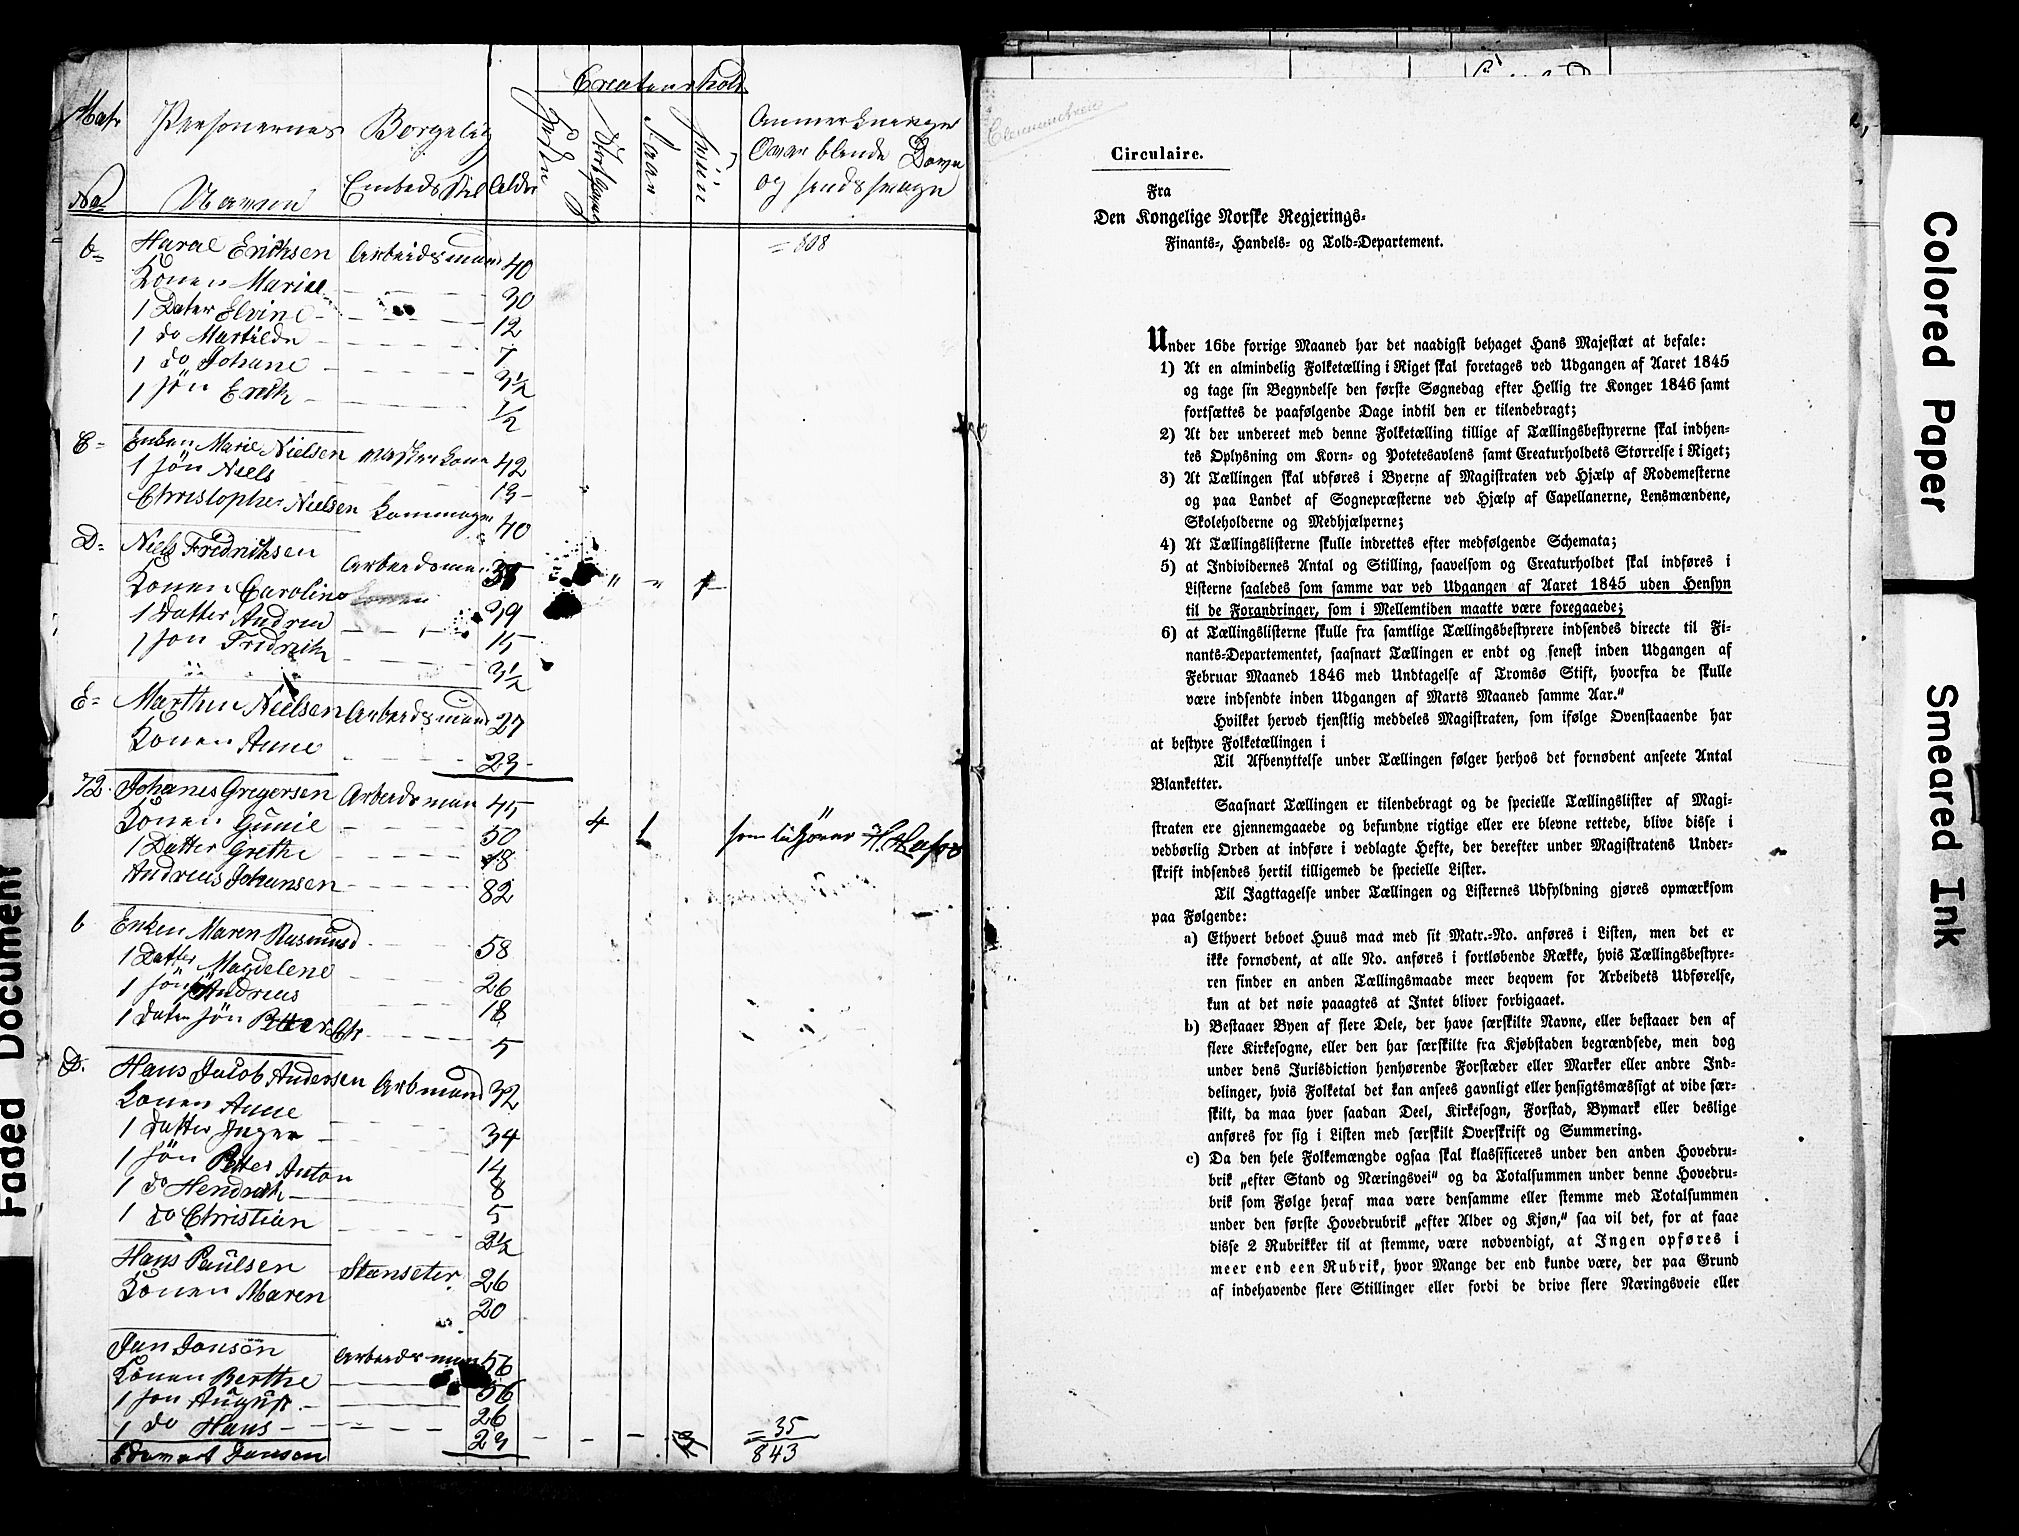 Creaturhold
Matr Personernes Borgelig Heste Storfæ Faar Sviin
No Navne Embeds Stil Alder og
= 808
b= Haral Erichsen Arbeidsmand 40
Konen Marie 30
1 Dater Elvine 12
1 do Martilde 7
1 do Johane 3½
1 søn Erich ½
C= Enken Marie Nielsen 42
1 søn Niels 13
Christopher Nielsen 40
D= Niels Fredriksen Arbeidsman
Konen Caroline 39
1 Datter Andrin 15
1 søn Fredrich 3½
E= Marthin Nielsen Arbeidsmand 27
Konen Anne 23
72. Johanes Gregersen Arbeidsman 45
Konen Gunil 50 4
1 Datter Grethe 18
Andreas Johansen 82
b Enken Maren Rasmusd 58
1 Datter Magdelene 26
1 søn Andreas 18
1 Daters søn Petter Chr 5
D. Hans Jacob Andersen Arbmand 32
Konen Anne 34
1 Datter Inger 14
1 søn Petter Anton 8
1 do Hendrich 5
1 do Christian 2½
Hans Paulsen 26
Konen Maren 20
Jan Jansen Arbeidsman 56
Konen Berthe 56
1 søn August 26
1 do Hans 23 = 35
Edvart Jansen 843
Circulaire.
Fra
Den Kongelige Norske Regjerings-
Finants-, Handels- og Told-Departement.
Under 16de forrige Maaned har det naadigst behaget Hans Majestæt at befale:
1) At en almindelig Folketælling i Riget skal foretages ved Udgangen af Aaret 1845
og tage sin Begyndelse den første Søgnedag efter Hellig tre Konger 1846 samt
fortsættes de paafølgende Dage indtil den er tilendebragt;
2) At der undereet med denne Folketælling tillige af Tællingsbestyrerne skal indhen-
tes Oplysning om Korn- og Potetesavlens samt Creaturholdets Størrelse i Riget;
3) At Tællingen skal udføres i Byerne af Magistraten ved Hjælp af Rodemesterne
og paa Landet af Sognepræsterne ved Hjælp af Capellanerne, Lensmændene,
Skoleholderne og Medhjælperne;
4) At Tællingslisterne skulle indrettes efter medfølgende Schemata;
5) at Individernes Antal og Stilling, saavelsom og Creaturholdet skal indføres i
Listerne saaledes som samme var ved Udgangen af Aaret 1845 uden Hensyn
til de Forandringer, som i Mellemtiden maatte være foregaaede;
6) at Tællingslisterne skulle fra samtlige Tællingsbestyrere indsendes directe til Fi-
nants-Departementet, saasnart Tællingen er endt og senest inden Udgangen af
Februar Maaned 1846 med Undtagelse af Tromsø Stift, hvorfra de skulle
være indsendte inden Udgangen af Marts Maaned samme Aar."
Hvilket herved tjenstlig meddeles Magistraten, som ifølge Ovenstaaende har
at bestyre Folketællingen i
Til Afbenyttelse under Tællingen følger herhos det fornødent anseete Antal
Blanketter.
Saasnart Tællingen er tilendebragt og de specielle Tællingslister af Magi-
straten ere gjennemgaaede og befundne rigtige eller ere blevne rettede, blive disse i
vedbørlig Orden at indføre i vedlagte Hefte, der derefter under Magistratens Under-
skrift indsendes hertil tilligemed de specielle Lister.
Til Jagttagelse under Tællingen og Listernes Udfyldning gjøres opmærksom
paa Følgende:
a) Ethvert beboet Huus maa med sit Matr.-No. anføres i Listen, men det er
ikke fornødent, at alle No. anføres i fortløbende Række, hvis Tællingsbestyre-
ren finder en anden Tællingsmaade meer beqvem for Arbeidets Udførelse,
kun at det nøie paaagtes at Intet bliver forbigaaet.
b) Bestaaer Byen af flere Dele, der have særskilte Navne, eller bestaaer den af
flere Kirkesogne, eller den har særskilte fra Kjøbstaden begrændsede, men dog
under dens Jurisdiction henhørende Forstæder eller Marker eller andre Ind-
delinger, hvis Folketal det kan ansees gavnligt eller hensigtsmæssigt at vide sær-
skilt, da maa hver saadan Deel, Kirkesogn, Forstad, Bymark eller deslige
anføres for sig i Listen med særskilt Overskrift og Summering.
c) Da den hele Folkemængde ogsaa skal klassificeres under den anden Hovedru-
brik „efter Stand og Næringsvei" og da Totalsummen under denne Hovedru-
brik som Følge heraf maa være densamme eller stemme med Totalsummen
under den første Hovedrubrik „efter Alder og Kjøn," saa vil det, for at faae
disse 2 Rubrikker til at stemme, være nødvendigt, at Ingen opføres i
meer end een Rubrik, hvor Mange der end kunde være, der paa Grund
af indehavende flere Stillinger eller fordi de drive flere Næringsveie eller
Colored Paper
Smeared Ink
Faded Document